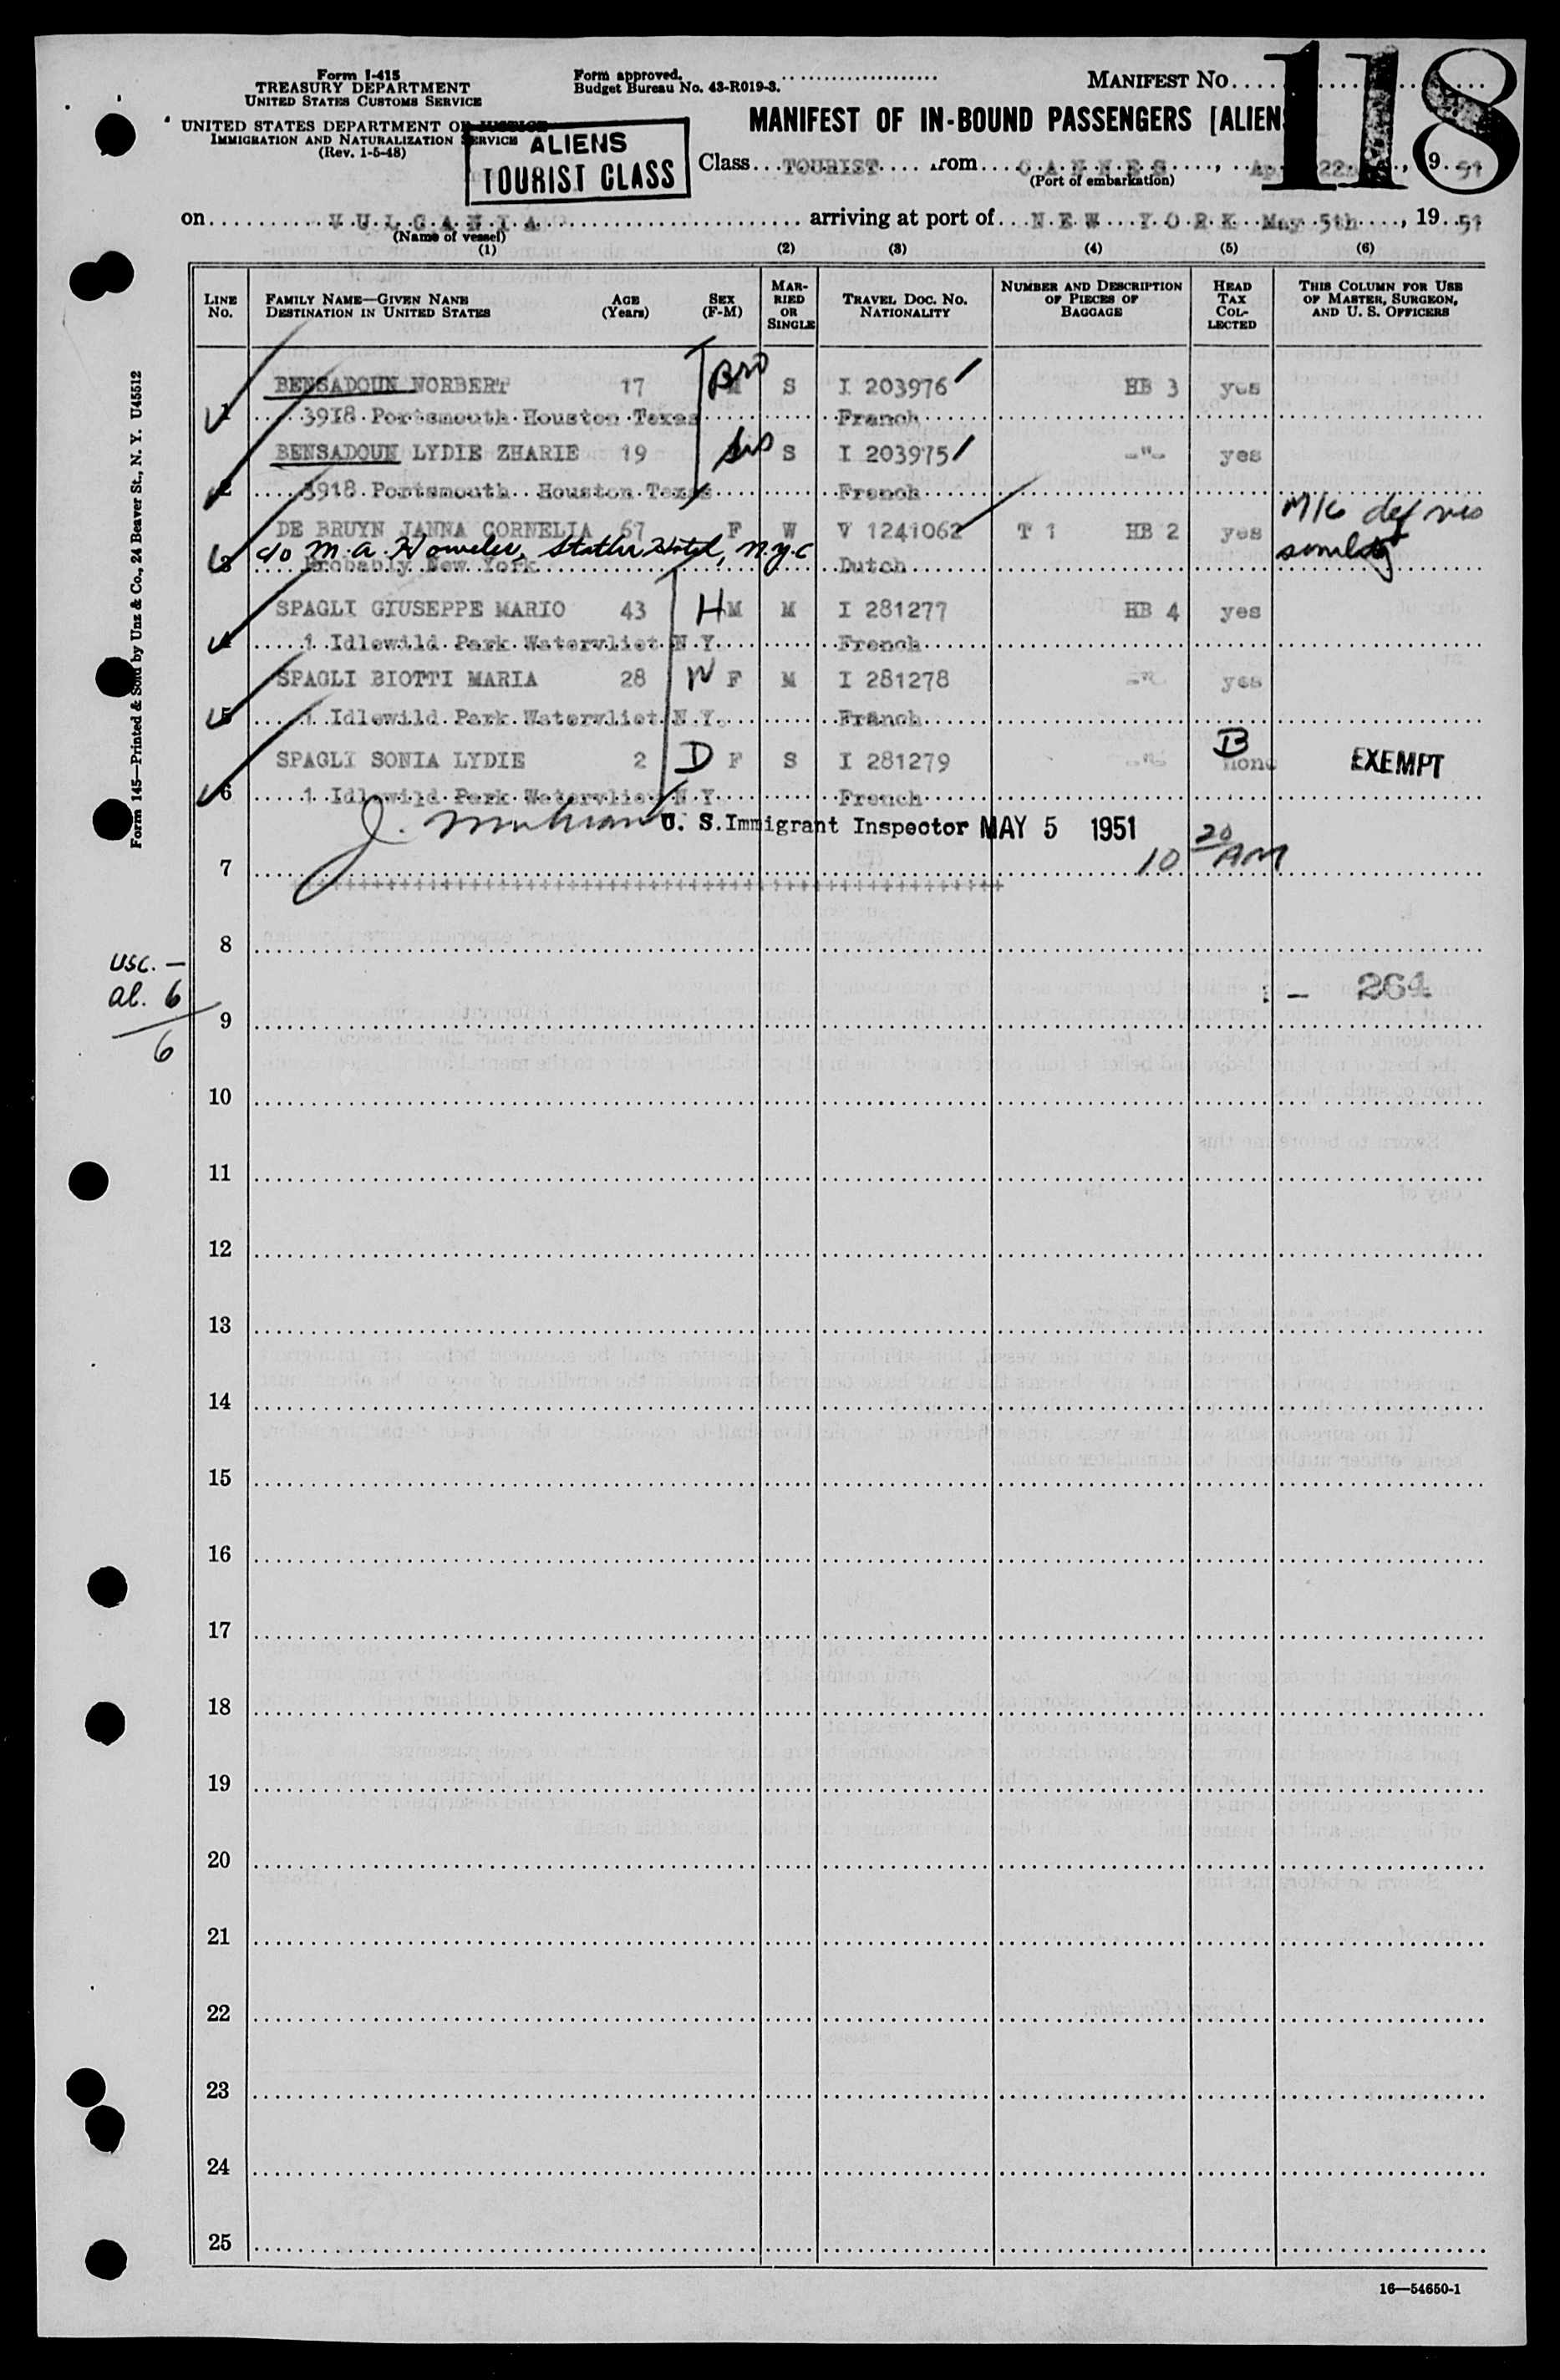 Form I-415
TREASURY DEPARTMENT
UNITED STATES CUSTOMS SERVICE
UNITED STATES DEPARTMENT OF JUSTICE
IMMIGRATION AND NATURALIZATION SERVICE
(Rev. 1-5-48)
Form approved.
Budget Bureau No. 43-R019-3.
ALIENS
TOURIST CLASS
MANIFEST NO.
118
MANIFEST OF IN-BOUND PASSENGERS [ALIENS
Class TOURIST from CANNES, Ap 22, 9 51
(Port of embarkation)
on VULCANIA arriving at port of NEW YORK May 5th, 19 51
(Name of vessel)
(1) (2) (3) (4) (5) (6)
LINE NO. FAMILY NAME—GIVEN NAME DESTINATION IN UNITED STATES AGE (Years) SEX (F-M) MARRIED OR SINGLE TRAVEL DOC. NO. NATIONALITY NUMBER AND DESCRIPTION OF PIECES OF BAGGAGE HEAD TAX COLLECTED THIS COLUMN FOR USE OF MASTER, SURGEON, AND U. S. OFFICERS
BENSADOUN NORBERT 17 M Bro S I 203976 HB 3 yes
1 3918 Portsmouth Houston Texas French
BENSADOUN LYDIE ZHARIE 19 Sis S I 203975 -"- yes
2 3918 Portsmouth Houston Texas French
DE BRUYN JANNA CORNELIA 67 F W V 1241062 T 1 HB 2 yes
c/o M. A. Statler Hotel, N.Y.C
3 Probably New York Dutch
SPAGLI GIUSEPPE MARIO 43 H M M I 281277 HB 4 yes
4 1 Idlewild Park Watervliet N.Y. French
SPAGLI BIOTTI MARIA 28 W F M I 281278 -"- yes
5 1 Idlewild Park Watervliet N.Y. French
SPAGLI SONIA LYDIE 2 D F S I 281279 -"- B none EXEMPT
6 1 Idlewild Park Watervliet N.Y. French
J. U. S. Immigrant Inspector MAY 5 1951 10 20 AM
7
8
USC. —
al. 6
6
- 264
9
10
11
12
13
14
15
16
17
18
19
20
21
22
23
24
25
16—54650-1
Form 145—Printed & Sold by Unz & Co., 24 Beaver St., N. Y. U45512